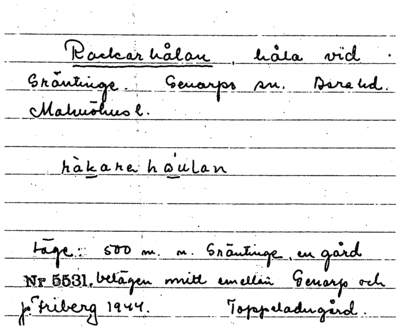 Rackarhålan, håla vid
Gräntinge. Genarps sn. Bara hd.
Malmöhus l.
råkarehåulan
Läge: 500 m. n. Gräntinge, en gård
Nr 5531. belägen mitt emellan Genarp och
Friberg 1944. Toppeladugård.